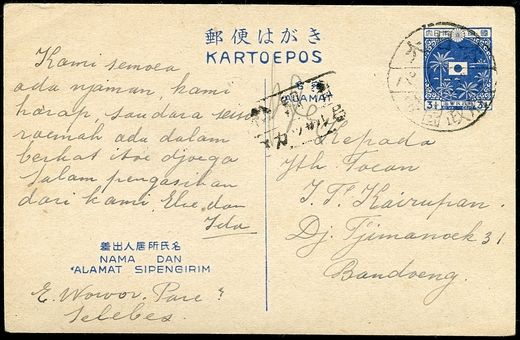 郵便はがき
KARTOEPOS
Kami semoea
ada njaman, kami
harap, saudara seisi
roemah ada dalam
berkat itoe djoega
Salam pengasihan
dari kami, Else dan
Ida
差出人居所氏名
NAMA DAN
ALAMAT SIPENGIRIM
E. Wowor. Pare ?
Selebes.
ALAMAT
Kepada
Jth. Toean
J. F. Kairupan.
Dj. Tjimanoek 31
Bandoeng.